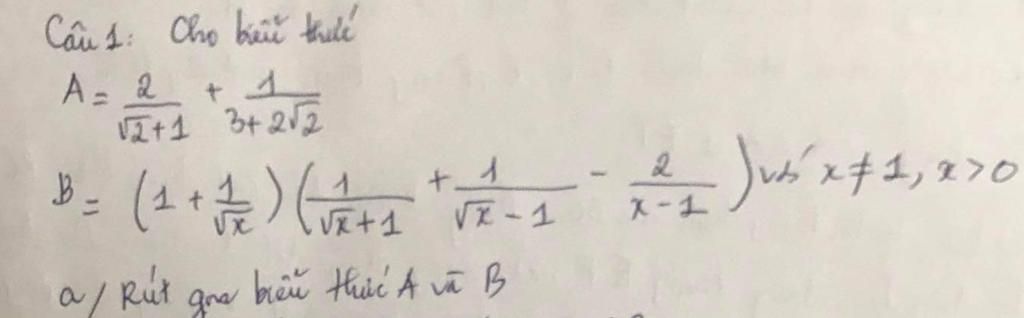 Câu 1: Cho biểu thức
A = 2/(√2+1) + 1/(3+2√2)
B = (1 + 1/√x)(1/(√x+1) + 1/(√x-1) - 2/(x-1)) với x ≠ 1, x > 0
a/ Rút gọn biểu thức A và B